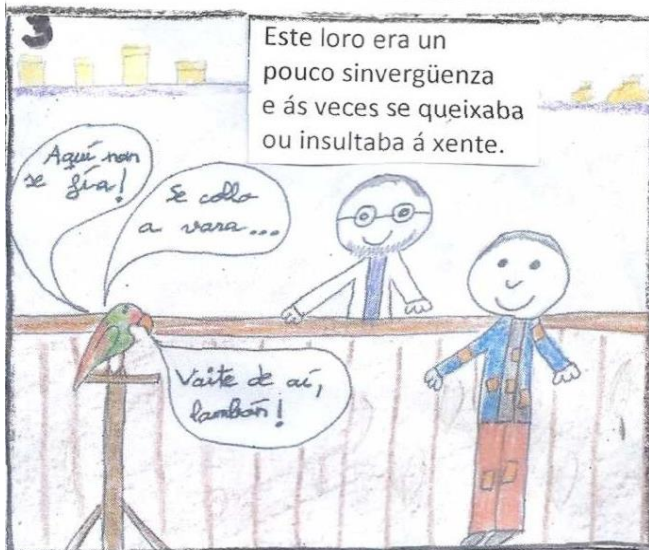 3
Este loro era un
pouco sinvergüenza
e ás veces se queixaba
ou insultaba á xente.
Aquí non
se fía!
Se collo
a vara...
Vaite de aí,
lambón!